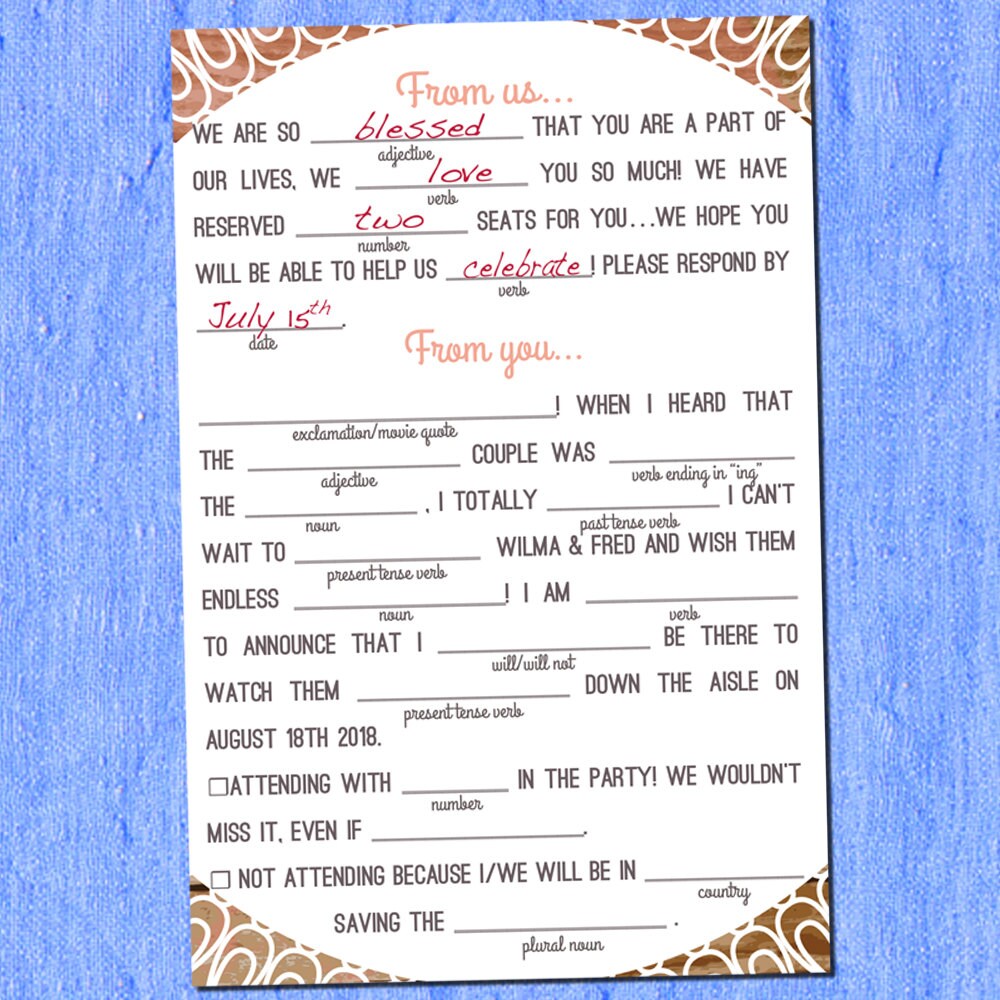 From us...
WE ARE SO blessed THAT YOU ARE A PART OF
adjective
OUR LIVES, WE love YOU SO MUCH! WE HAVE
verb
RESERVED two SEATS FOR YOU...WE HOPE YOU
number
WILL BE ABLE TO HELP US celebrate! PLEASE RESPOND BY
verb
July 15th.
date
From you...
! WHEN I HEARD THAT
exclamation/movie quote
THE COUPLE WAS
adjective verb ending in "ing"
THE , I TOTALLY I CAN'T
noun past tense verb
WAIT TO WILMA & FRED AND WISH THEM
present tense verb
ENDLESS ! I AM
noun verb
TO ANNOUNCE THAT I BE THERE TO
will/will not
WATCH THEM DOWN THE AISLE ON
present tense verb
AUGUST 18TH 2018.
☐ATTENDING WITH IN THE PARTY! WE WOULDN'T
number
MISS IT, EVEN IF .
☐ NOT ATTENDING BECAUSE I/WE WILL BE IN
country
SAVING THE .
plural noun